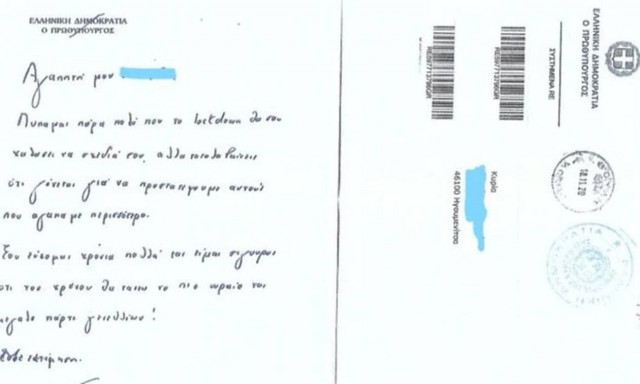 ΕΛΛΗΝΙΚΗ ΔΗΜΟΚΡΑΤΙΑ
Ο ΠΡΩΘΥΠΟΥΡΓΟΣ
Αγαπητή μου
Λυπαμαι πάρα πολύ που το lockdown θα σου
χαλασει τα σχεδιά σου, αλλα καταλαβαίνεις
ότι γίνεται για να προστατέψουμε αυτούς
που αγαπαμε περισσότερο.
Σου εύχομαι χρόνια πολλά και είμαι σιγουρος
οτι του χρόνου θα κανεις το πιο ωραίο και
μεγαλο πάρτι γενεθλίων!
ΕΛΛΗΝΙΚΗ ΔΗΜΟΚΡΑΤΙΑ
Ο ΠΡΩΘΥΠΟΥΡΓΟΣ
ΣΥΣΤΗΜΕΝΑ RE
RE597713796GR
RE597713796GR
18.11.20
Κυρία
46100 Ηγουμενίτσα